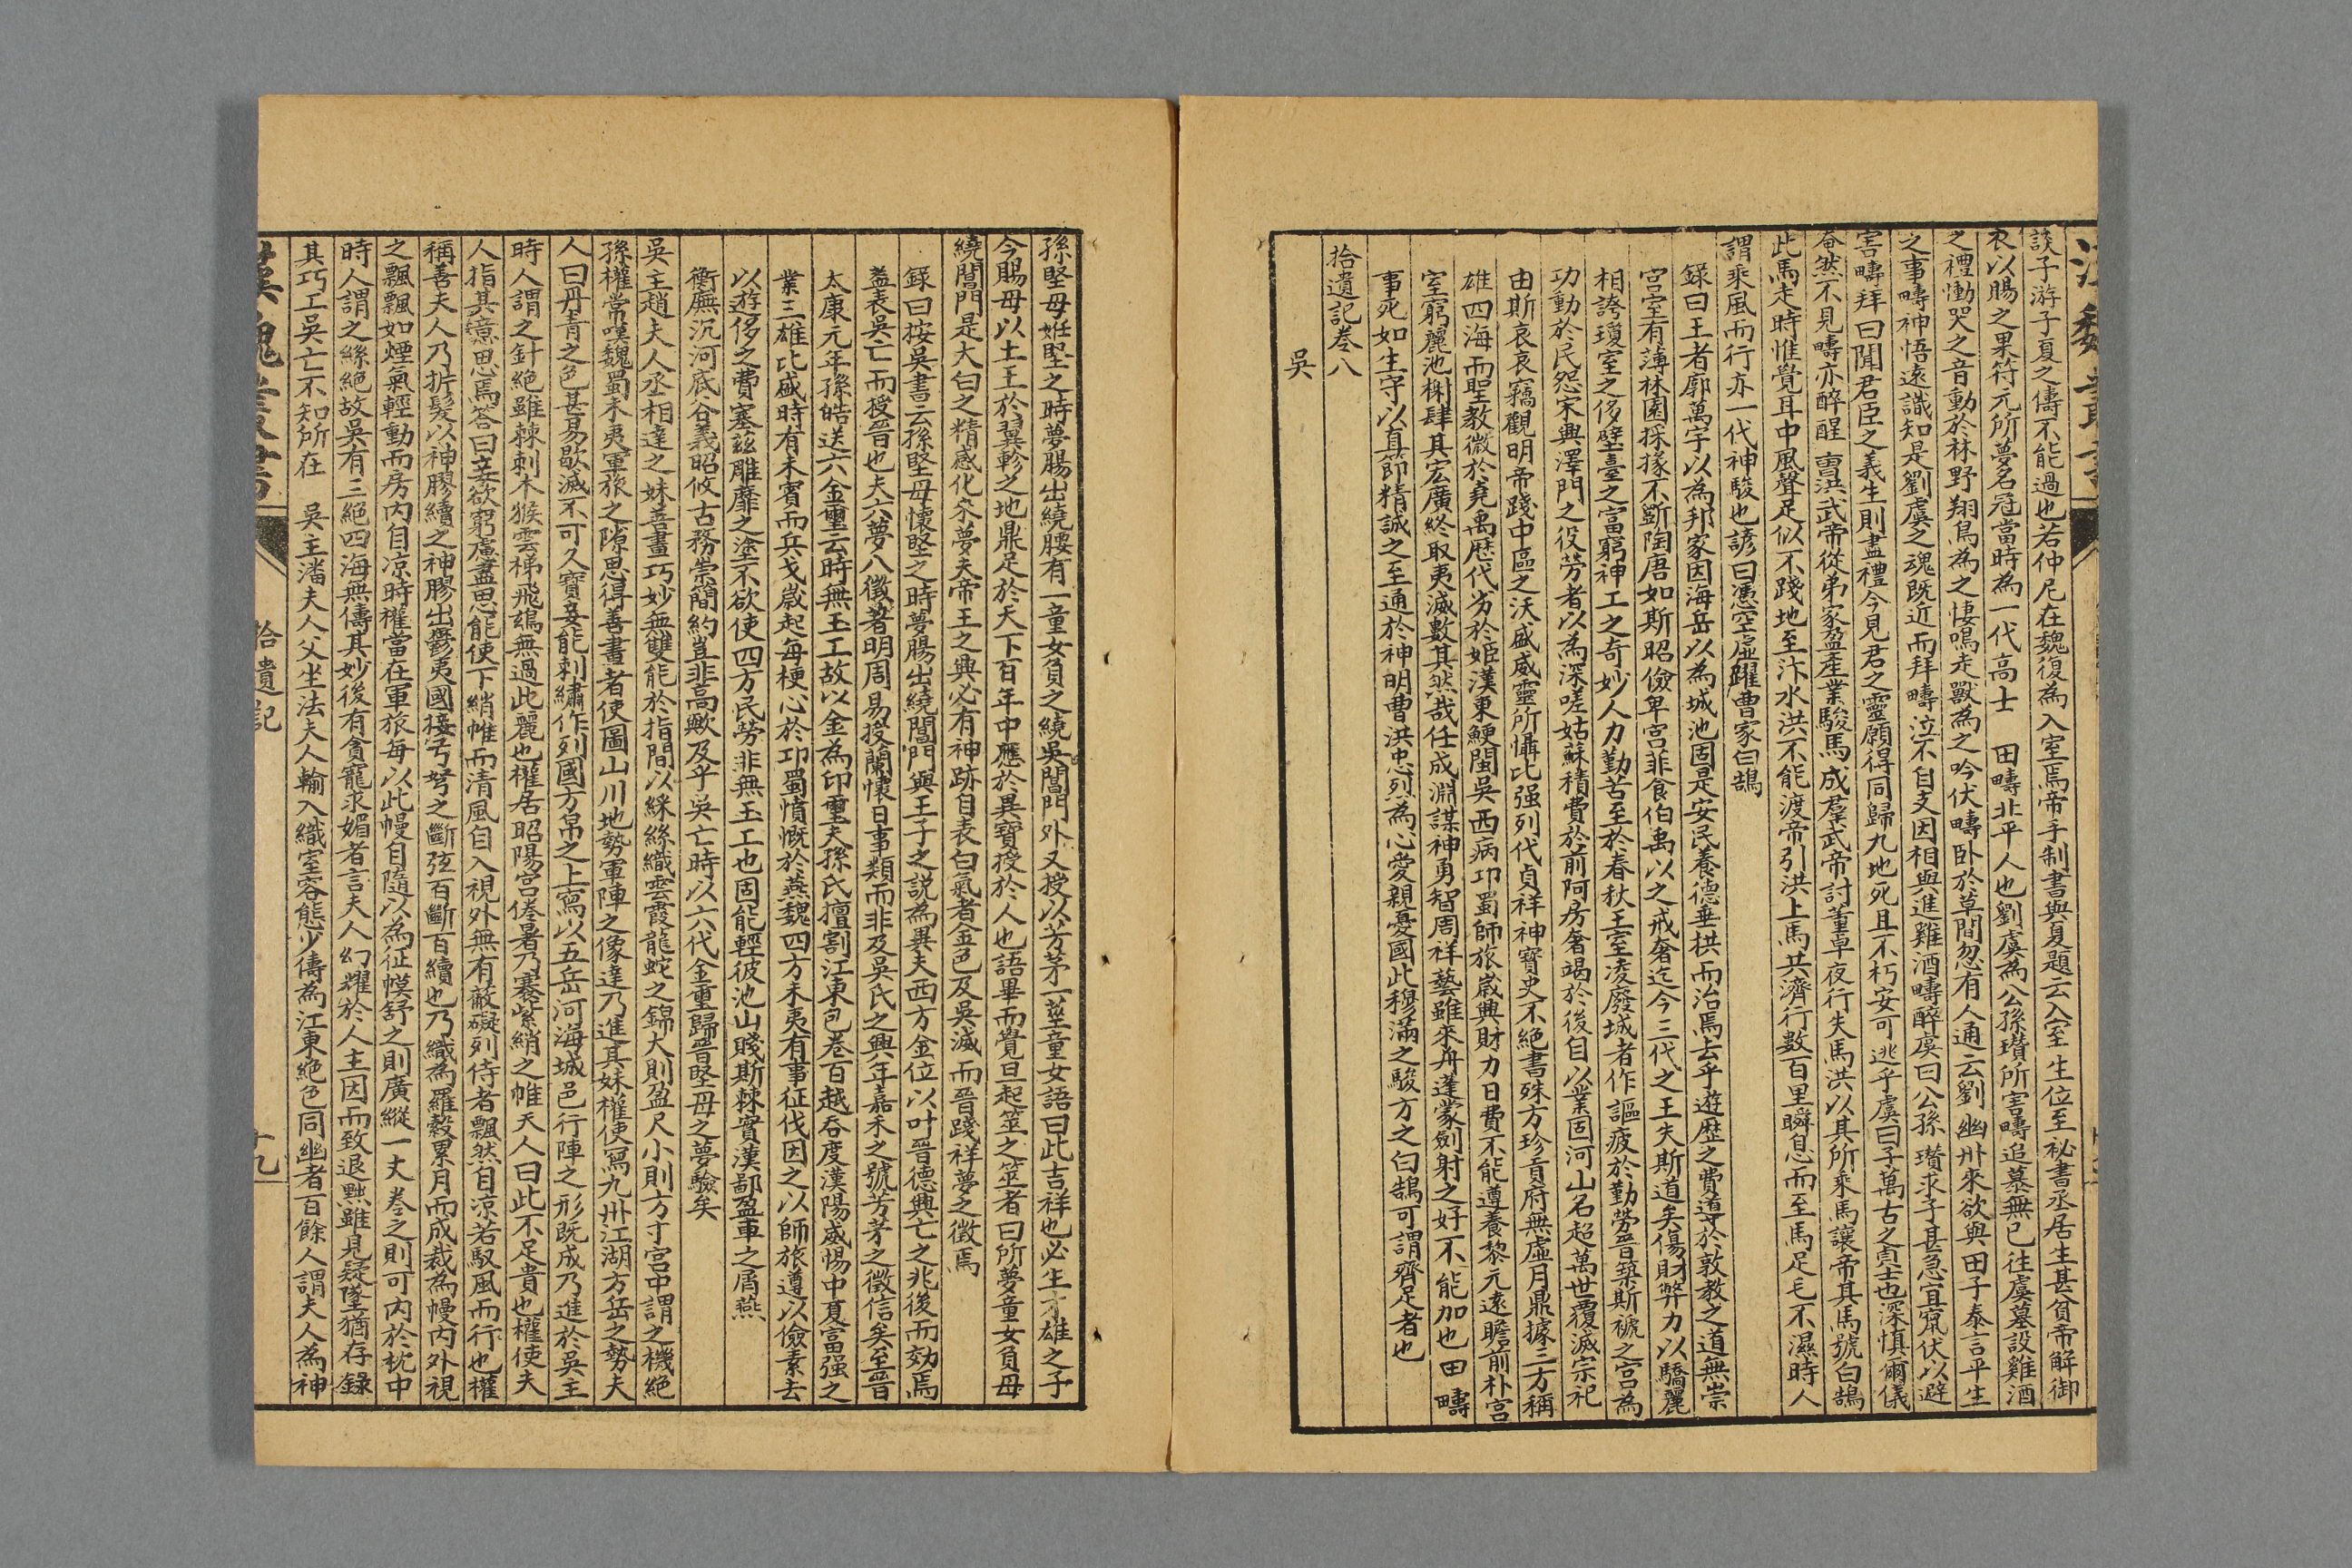 談子游子夏之儔不能過也若仲尼在魏復為入室焉帝手制書與夏題云入室生位至祕書丞居生甚貧帝解御
衣以賜之果符元所夢名冠當時為一代高士　田疇北平人也劉虞為公孫瓚所害疇追慕無已往虞墓設雞酒
之禮慟哭之音動於林野翔鳥為之悽鳴走獸為之吟伏疇卧於草間忽有人通云劉幽州來欲與田子泰言平生
之事疇神悟遠識知是劉虞之魂既近而拜疇泣不自支因相與進雞酒疇醉虞曰公孫瓚求子甚急宜竄伏以避
害疇拜曰聞君臣之義生則盡禮今見君之靈願得同歸九地死且不朽安可逃乎虞曰子萬古之貞士也深慎爾儀
奄然不見疇亦醉醒　曹洪武帝從弟家盈產業駿馬成羣武帝討董卓夜行失馬洪以其所乘馬讓帝其馬號白鵠
此馬走時惟覺耳中風聲足似不踐地至汴水洪不能渡帝引洪上馬共濟行數百里瞬息而至馬足毛不濕時人
謂乘風而行亦一代神駿也諺曰憑空虛躍曹家白鵠
錄曰王者廓萬宇以為邦家因海岳以為城池固是安民養德垂拱而治焉去乎遊歷之費導於敦教之道無崇
宮室有薄林園採椽不斲陶唐如斯昭儉卑宮菲食伯禹以之戒奢迄今三代之王失斯道矣傷財弊力以驕麗
相誇瓊室之侈璧臺之富窮神工之奇妙人力勤苦至於春秋王室凌廢城者作謳疲於勤勞晉築斯禠之宮為
功動於民怨宋興澤門之役芳者以為深嗟姑蘇積費於前阿房奢竭於後自以業固河山名超萬世覆滅宗祀
由斯哀哀竊觀明帝踐中區之沃盛威靈所懾比强列代貞祥神寶史不絕書殊方珍貢府無虛月鼎據三方稱
雄四海而聖教微於堯禹歷代劣於姬漢東鯁閩吳西病卭蜀師旅歲興財力日費不能遵養黎元遠瞻前朴宮
室窮麗池榭肆其宏廣終取夷滅數其然哉任成淵謀神勇智周祥藝雖來舟蓬蒙劍射之好不能加也田疇
事死如生守以真節精誠之至通於神明曹洪忠烈為心愛親憂國此穆滿之駿方之白鵠可謂齊足者也
拾遺記卷八
吳
孫堅母姙堅之時夢腸出繞腰有一童女負之繞吳閶門外又授以芳茅一莖童女語曰此吉祥也必生才雄之子
今賜母以土王於翼軫之地鼎足於天下百年中應於異寶授於人也語畢而覺旦起筮之筮者曰所夢童女負母
繞閶門是太白之精感化來夢夫帝王之興必有神跡自表白氣者金色及吳滅而晉踐祥夢之徵焉
錄曰按吳書云孫堅母懷堅之時夢腸出繞閶門與王子之説為異夫西方金位以叶晉德興亡之兆後而効焉
葢表吳亡而授晉也夫六夢八徵著明周易授蘭懷日事類而非及吳氏之興年嘉禾之號芳茅之徵信矣至晉
太康元年孫皓送六金璽云時無玉工故以金為印璽夫孫氏擅割江東包卷百越吞度漢陽威惕中夏富强之
業三雄比盛時有未賓而兵戈歲起每梗心於卭蜀憤慨於燕魏四方未夷有事征伐因之以師旅遵以儉素去
以遊侈之費塞兹雕靡之塗不欲使四方民勞非無玉工也固能輕彼池山賤斯棘實漢鄙盈車之屑燕
衡廡沉河底谷義昭攸古務崇簡約豈非高歟及乎吳亡時以六代金璽歸晉堅母之夢驗矣
吳主趙夫人丞相達之妹善畫巧妙無雙能於指間以綵絲織雲霞龍蛇之錦大則盈尺小則方寸宮中謂之機絕
孫權常嘆魏蜀未夷軍旅之隙思得善畫者使圖山川地勢軍陣之像達乃進其妹權使寫九州江湖方岳之勢夫
人曰丹青之色甚易歇滅不可久寶妾能刺繡作列國方帛之上寫以五岳河海城邑行陣之形既成乃進於吳主
時人謂之針絕雖棘刺木猴雲梯飛鴻無過此麗也權居昭陽宮倦暑乃褰紫綃之帷夫人曰此不足貴也權使夫
人指其意思焉答曰妾欲窮慮盡思能使下綃帷而清風自入視外無有蔽礙列侍者飄然自凉若馭風而行也權
稱善夫人乃折髮以神膠續之神膠出鬱夷國接弓弩之斷弦百斷百續也乃織為羅縠累月而成裁為幔內外視
之飄飄如煙氣輕動而房內自凉時權當在軍旅每以此幔自隨以為征幙舒之則廣縱一丈卷之則可內於枕中
時人謂之絲絕故吳有三絕四海無儔其妙後有貪寵求媚者言夫人幻耀於人主因而致退黜雖見疑墜猶存錄
其巧工吳亡不知所在　吳主潘夫人父坐法夫人輸入織室容態少儔為江東絕色同幽者百餘人謂夫人為神
漢魏叢書
拾遺記
十九